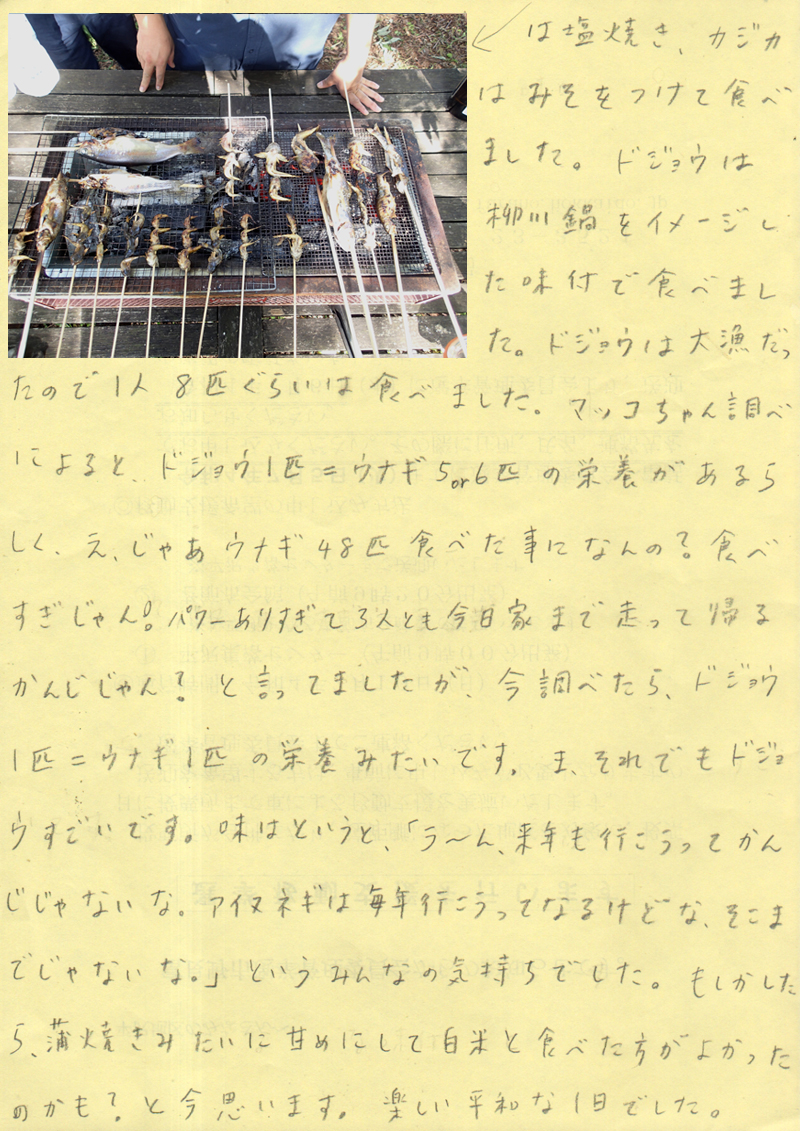 は塩焼き、カジカ
はみそをつけて食べ
ました。ドジョウは
柳川鍋をイメージし
た味付で食べまし
た。ドジョウは大漁だっ
たので1人8匹ぐらいは食べました。マッコちゃん調べ
によると、ドジョウ1匹=ウナギ5or6匹の栄養があるら
しく、え、じゃあウナギ48匹食べた事になんの?食べ
すぎじゃん!パワーありすぎて3人とも今日家まで走って帰る
かんじじゃん?と言ってましたが、今調べたら、ドジョウ
1匹=ウナギ1匹の栄養みたいです。ま、それでもドジョ
ウすごいです。味はというと、「う〜ん、来年も行こうってかん
じじゃないな。アイヌネギは毎年行こうってなるけどな、そこま
でじゃないな。」というみんなの気持ちでした。もしかした
ら、蒲焼きみたいに甘めにして白米と食べた方がよかった
のかも?と今思います。楽しい平和な1日でした。